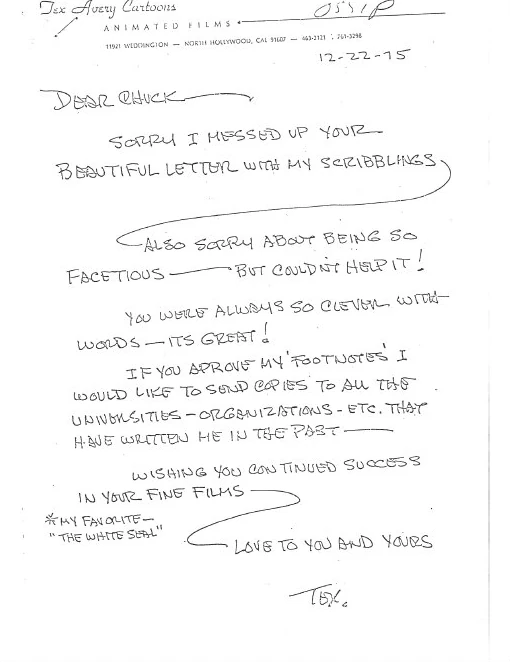 Tex Avery Cartoons
ANIMATED FILMS
11921 WEDDINGTON — NORTH HOLLYWOOD, CAL 91607 — 463-2121 : 761-3298
12-22-75
DEAR CHUCK
SORRY I MESSED UP YOUR
BEAUTIFUL LETTER WITH MY SCRIBBLINGS
ALSO SORRY ABOUT BEING SO
FACETIOUS — BUT COULDN'T HELP IT!
YOU WERE ALWAYS SO CLEVER WITH
WORDS — ITS GREAT!
IF YOU APROVE MY 'FOOTNOTES' I
WOULD LIKE TO SEND COPIES TO ALL THE
UNIVERSITIES - ORGANIZATIONS - ETC. THAT
HAVE WRITTEN ME IN THE PAST —
WISHING YOU CONTINUED SUCCESS
IN YOUR FINE FILMS
*MY FAVORITE —
"THE WHITE SEAL"
LOVE TO YOU AND YOURS
TEX.